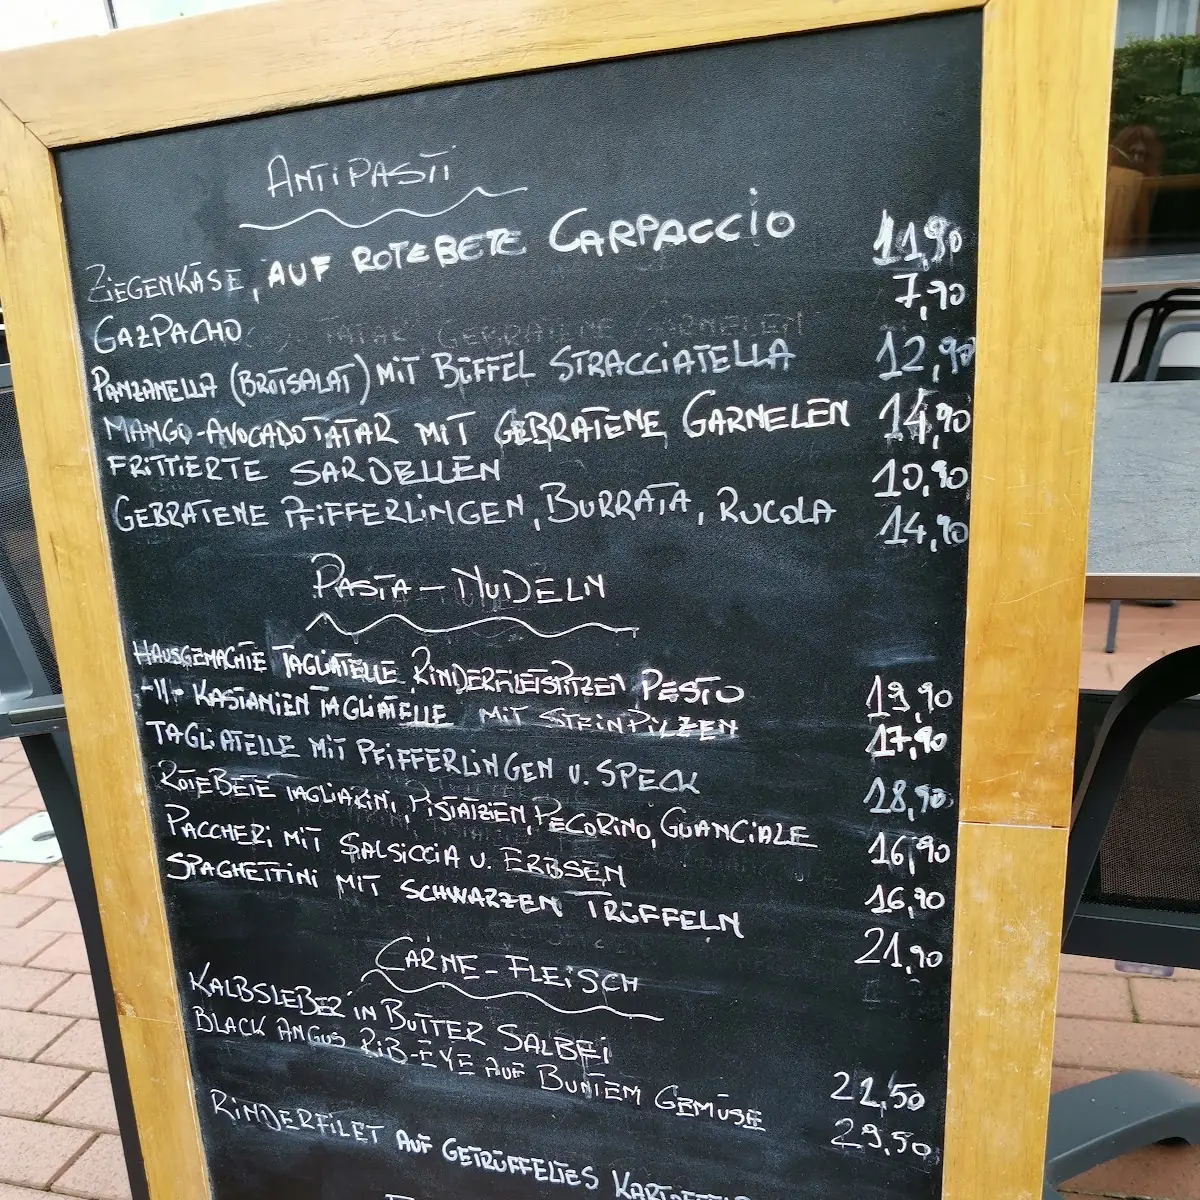 ANTIPASTI
ZIEGENKÄSE, AUF ROTEBETE CARPACCIO 11,90
GAZPACHO 7,90
PANZANELLA (BROTSALAT) MIT BÜFFEL STRACCIATELLA 12,90
MANGO-AVOCADOTATAR MIT GEBRATENE GARNELEN 14,90
FRITTIERTE SARDELLEN 10,90
GEBRATENE PFIFFERLINGEN, BURRATA, RUCOLA 14,90
PASTA - NUDELN
HAUSGEMACHTE TAGLIATELLE RINDERFILETSPITZEN PESTO 19,90
-11- KASTANIEN TAGLIATELLE MIT STEINPILZEN 17,90
TAGLIATELLE MIT PFIFFERLINGEN U. SPECK 18,90
ROTEBETE TAGLIARINI, PISTATZIEN, PECORINO, GUANCIALE 16,90
PACCHERI MIT SALSICCIA U. ERBSEN 16,90
SPAGHETTINI MIT SCHWARZEN TRÜFFELN 21,90
CARNE - FLEISCH
KALBSLEBER IN BUTTER SALBEI 22,50
BLACK ANGUS RIB-EYE AUF BUNTEM GEMÜSE 29,50
RINDERFILET AUF GETRÜFFELTES